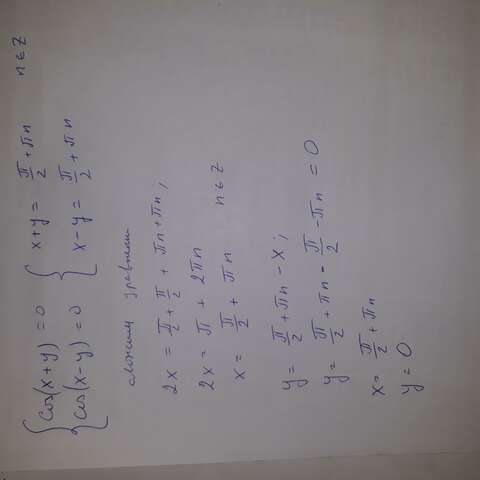 { cos(x+y) = 0 { x+y = π/2 + πn n ∈ Z
{ cos(x-y) = 0 { x-y = π/2 + πn
сложим уравнения
2x = π/2 + π/2 + πn + πn;
2x = π + 2πn
x = π/2 + πn n ∈ Z
y = π/2 + πn - x;
y = π/2 + πn - π/2 - πn = 0
x = π/2 + πn
y = 0